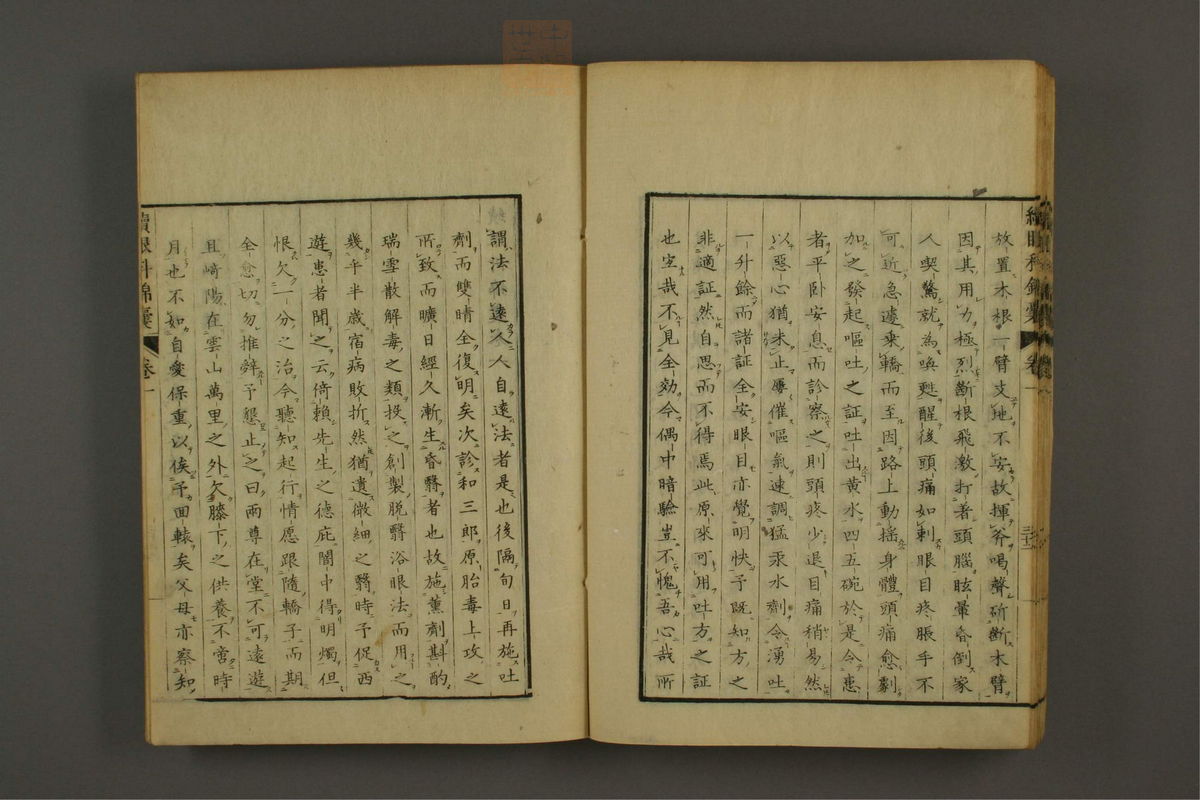 放置木根一臂支地不安故揮斧喝聲斫断木臂
因其用力極烈断根飛激打著頭腦眩暈昏倒家
人喫驚就為喚甦醒後頭痛如刺眼目疼脹手不
可近急遽乗轎而至因路上動揺身體頭痛愈劇
加之發起嘔吐之証吐出黄水四五碗於是令患
者平卧安息而診察之則頭疼少退目痛稍易然
以惡心猶未止屢催嘔氣速調猛汞水劑令湧吐
一升餘而諸証全安眼目亦覺明快予既知方之
非適証然自思而不得焉此原來可用吐方之証
也空哉不見全効今偶中暗驗豈不愧吾心哉所
謂法不遠人人自遠法者是也後隔旬日再施吐
劑而雙睛全復明矣次診和三郎原胎毒上攻之
所致而曠日經久漸生昏翳者也故施薫劑斟酌
瑞雪散解毒之類投之創製脱翳浴眼法而用之
幾乎半歳宿病敗折然猶遺微細之翳時予促西
遊患者聞之云倚頼先生之德庇闇中得明燭但
恨欠一分之治今聽知起行情愿跟隨轎子而期
全愈切勿推辤予懇止之曰兩尊在堂不可遠遊
且崎陽在雲山萬里之外欠膝下之供養不啻時
月也不如自愛保重以俟予回轅矣父母亦察知
續眼科錦囊 卷一